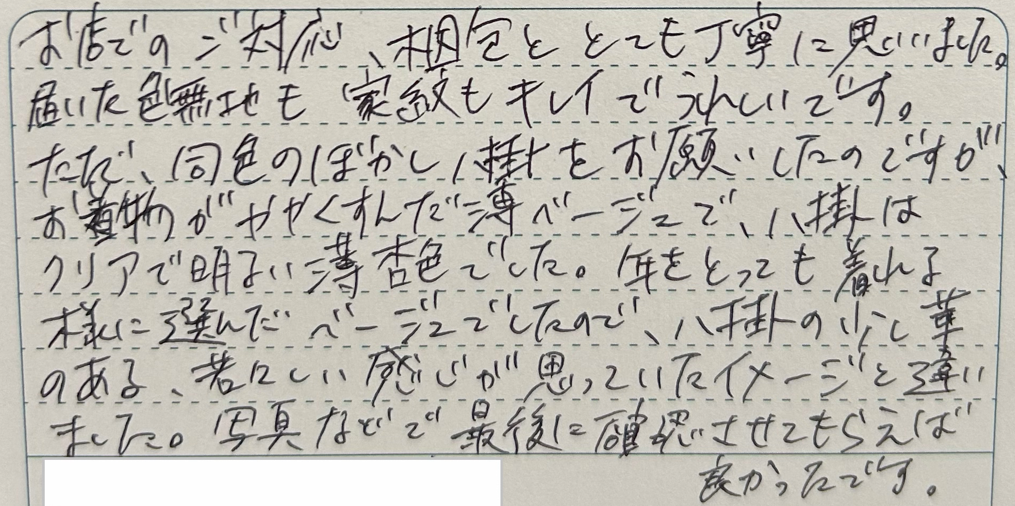 お店でのご対応、梱包ととても丁寧に思いました。
届いた色無地も 家紋もキレイでうれしいです。
ただ、同色のぼかし八掛をお願いしたのですが、
お着物がややくすんだ薄ベージュで、八掛は
クリアで明るい薄杏色でした。年をとっても着れる
様に選んだベージュでしたので、八掛の少し華
のある、若々しい感じが思っていたイメージと違い
ました。写真などで最後に確認させてもらえば
良かったです。